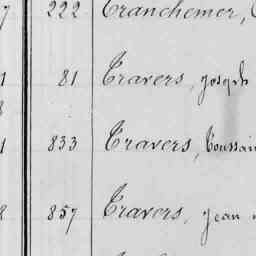 7 222 Tranchemer,
1 81 Travers, Joseph
8
1 833 Travers, Toussain
8 857 Travers, Jean